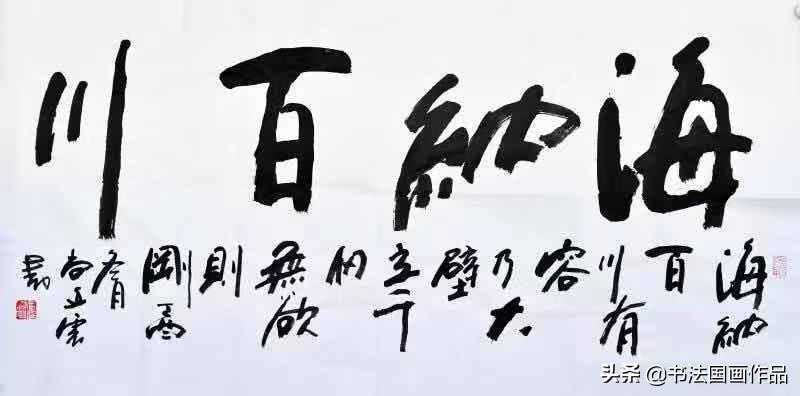 海納百川
海納百川有容乃大壁立千仞無欲則剛
头条 @书法国画作品